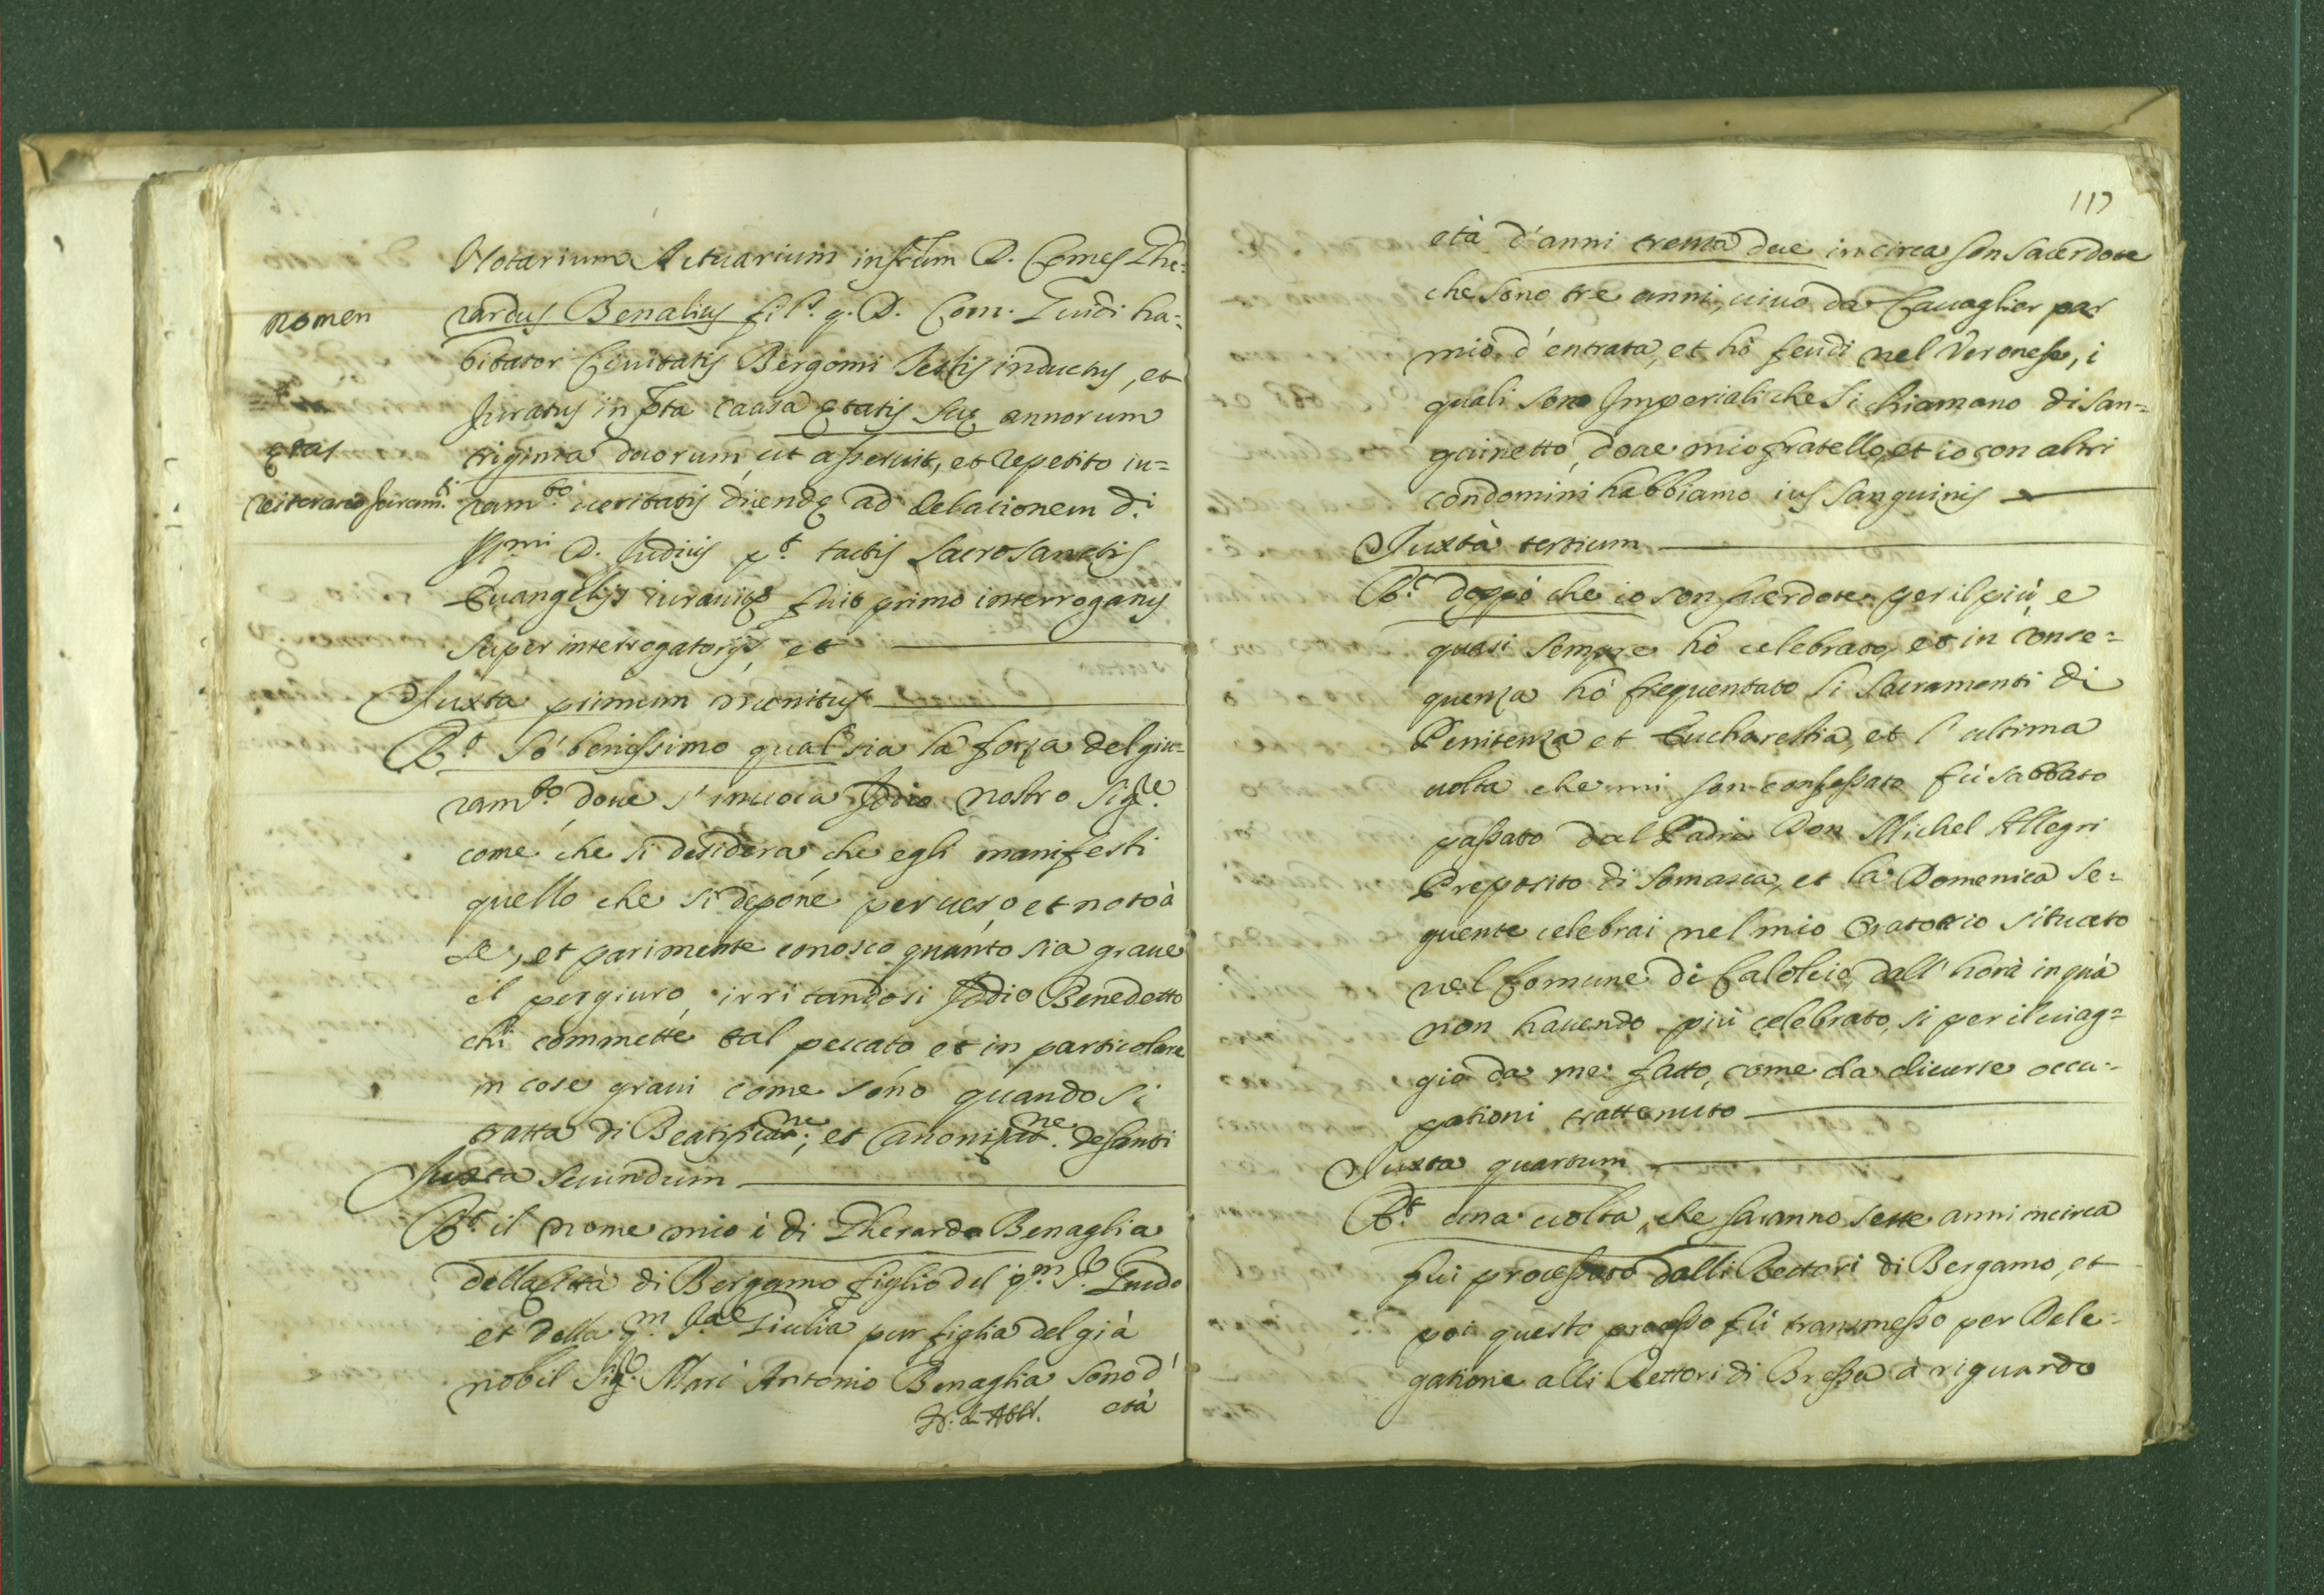 Notarium Actuarium infrũm D. Comes Ghe=
nomen
rardus Benalius fil.s q. D. Com. Guidi ha=
bitator Civitatis Bergomi testis inductus, et
Juratus in pñta caasa ętatis suę annorum
ętas
triginta duorum ut asseruit, et repetito iu=
reiterato Juram.ti
ram.to veritatis dicendę ad delationem d.i
Ill.mi D. Judicis p.t tactis sacrosanctis
Evangelijs iuravit fuit primo interrogatus
super interrogatorijs, et
Juxta primum monitus
R.t Só benissimo qual sia la forza del giu=
ram.to dove s'invoca Iddio nostro Sig.re
come che si desidera che egli manifesti
quello che si depone per vero et noto à
se, et parimente conosco quanto sia grave
il pergiuro, irritandosi Iddio Benedetto
chi commette tal peccato et in particolare
in cose gravi come sono quando si
tratta di Beatificat.ne; et Canonizat.ne de santi
Juxta secundum
R.t il nome mio è di Gherardo Benaglia
della Città di Bergamo figlio del q.m S.r Guido
et della q.m S.ra Giulia pur figlia del già
nobil Sig.r Marc Antonio Benaglia sono d'
età
117
età d'anni trenta due incirca son sacerdote
che sono tre anni, vivo da Cavaglier par
mio d'entrata, et hò feudi nel Veronese, i
quali sono Imperiali che si chiamano di San=
guinetto, dove mio fratello, et io con altri
condomini habbiamo ius sanguinis
Juxtà tertium
R.t doppò che io son sacerdote per il più, e
quasi sempre hò celebrato, et in conse=
quenza hò frequentato li Sacramenti di
Penitenza et Eucharestia, et l'ultima
volta che mi son confessato fù sabbato
passato dal Padre Don Michel Allegri
Preposito di Somasca, et la Domenica se=
guente celebrai nel mio Oratorio situato
nel Comune di Calolcio, dall'horà in quà
non havendo più celebrato, sì per il viag=
gio da me fatto, come da diverse occu=
pationi trattenuto
Juxta quartum
R.t una volta, che saranno sette anni incirca
fui processato dalli Rettori di Bergamo, et
poi questo processo fù transmesso per Dele=
gatione alli Rettori di Bressa à riguardo